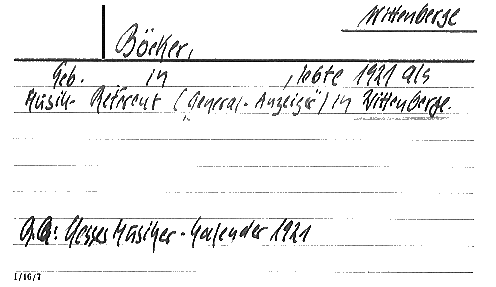 Wittenberge
Böcker,
Geb. in , lebte 1921 als
Musik-Referent („General-Anzeiger") in Wittenberge.
Hesses Musiker-Kalender 1921
1/16/7